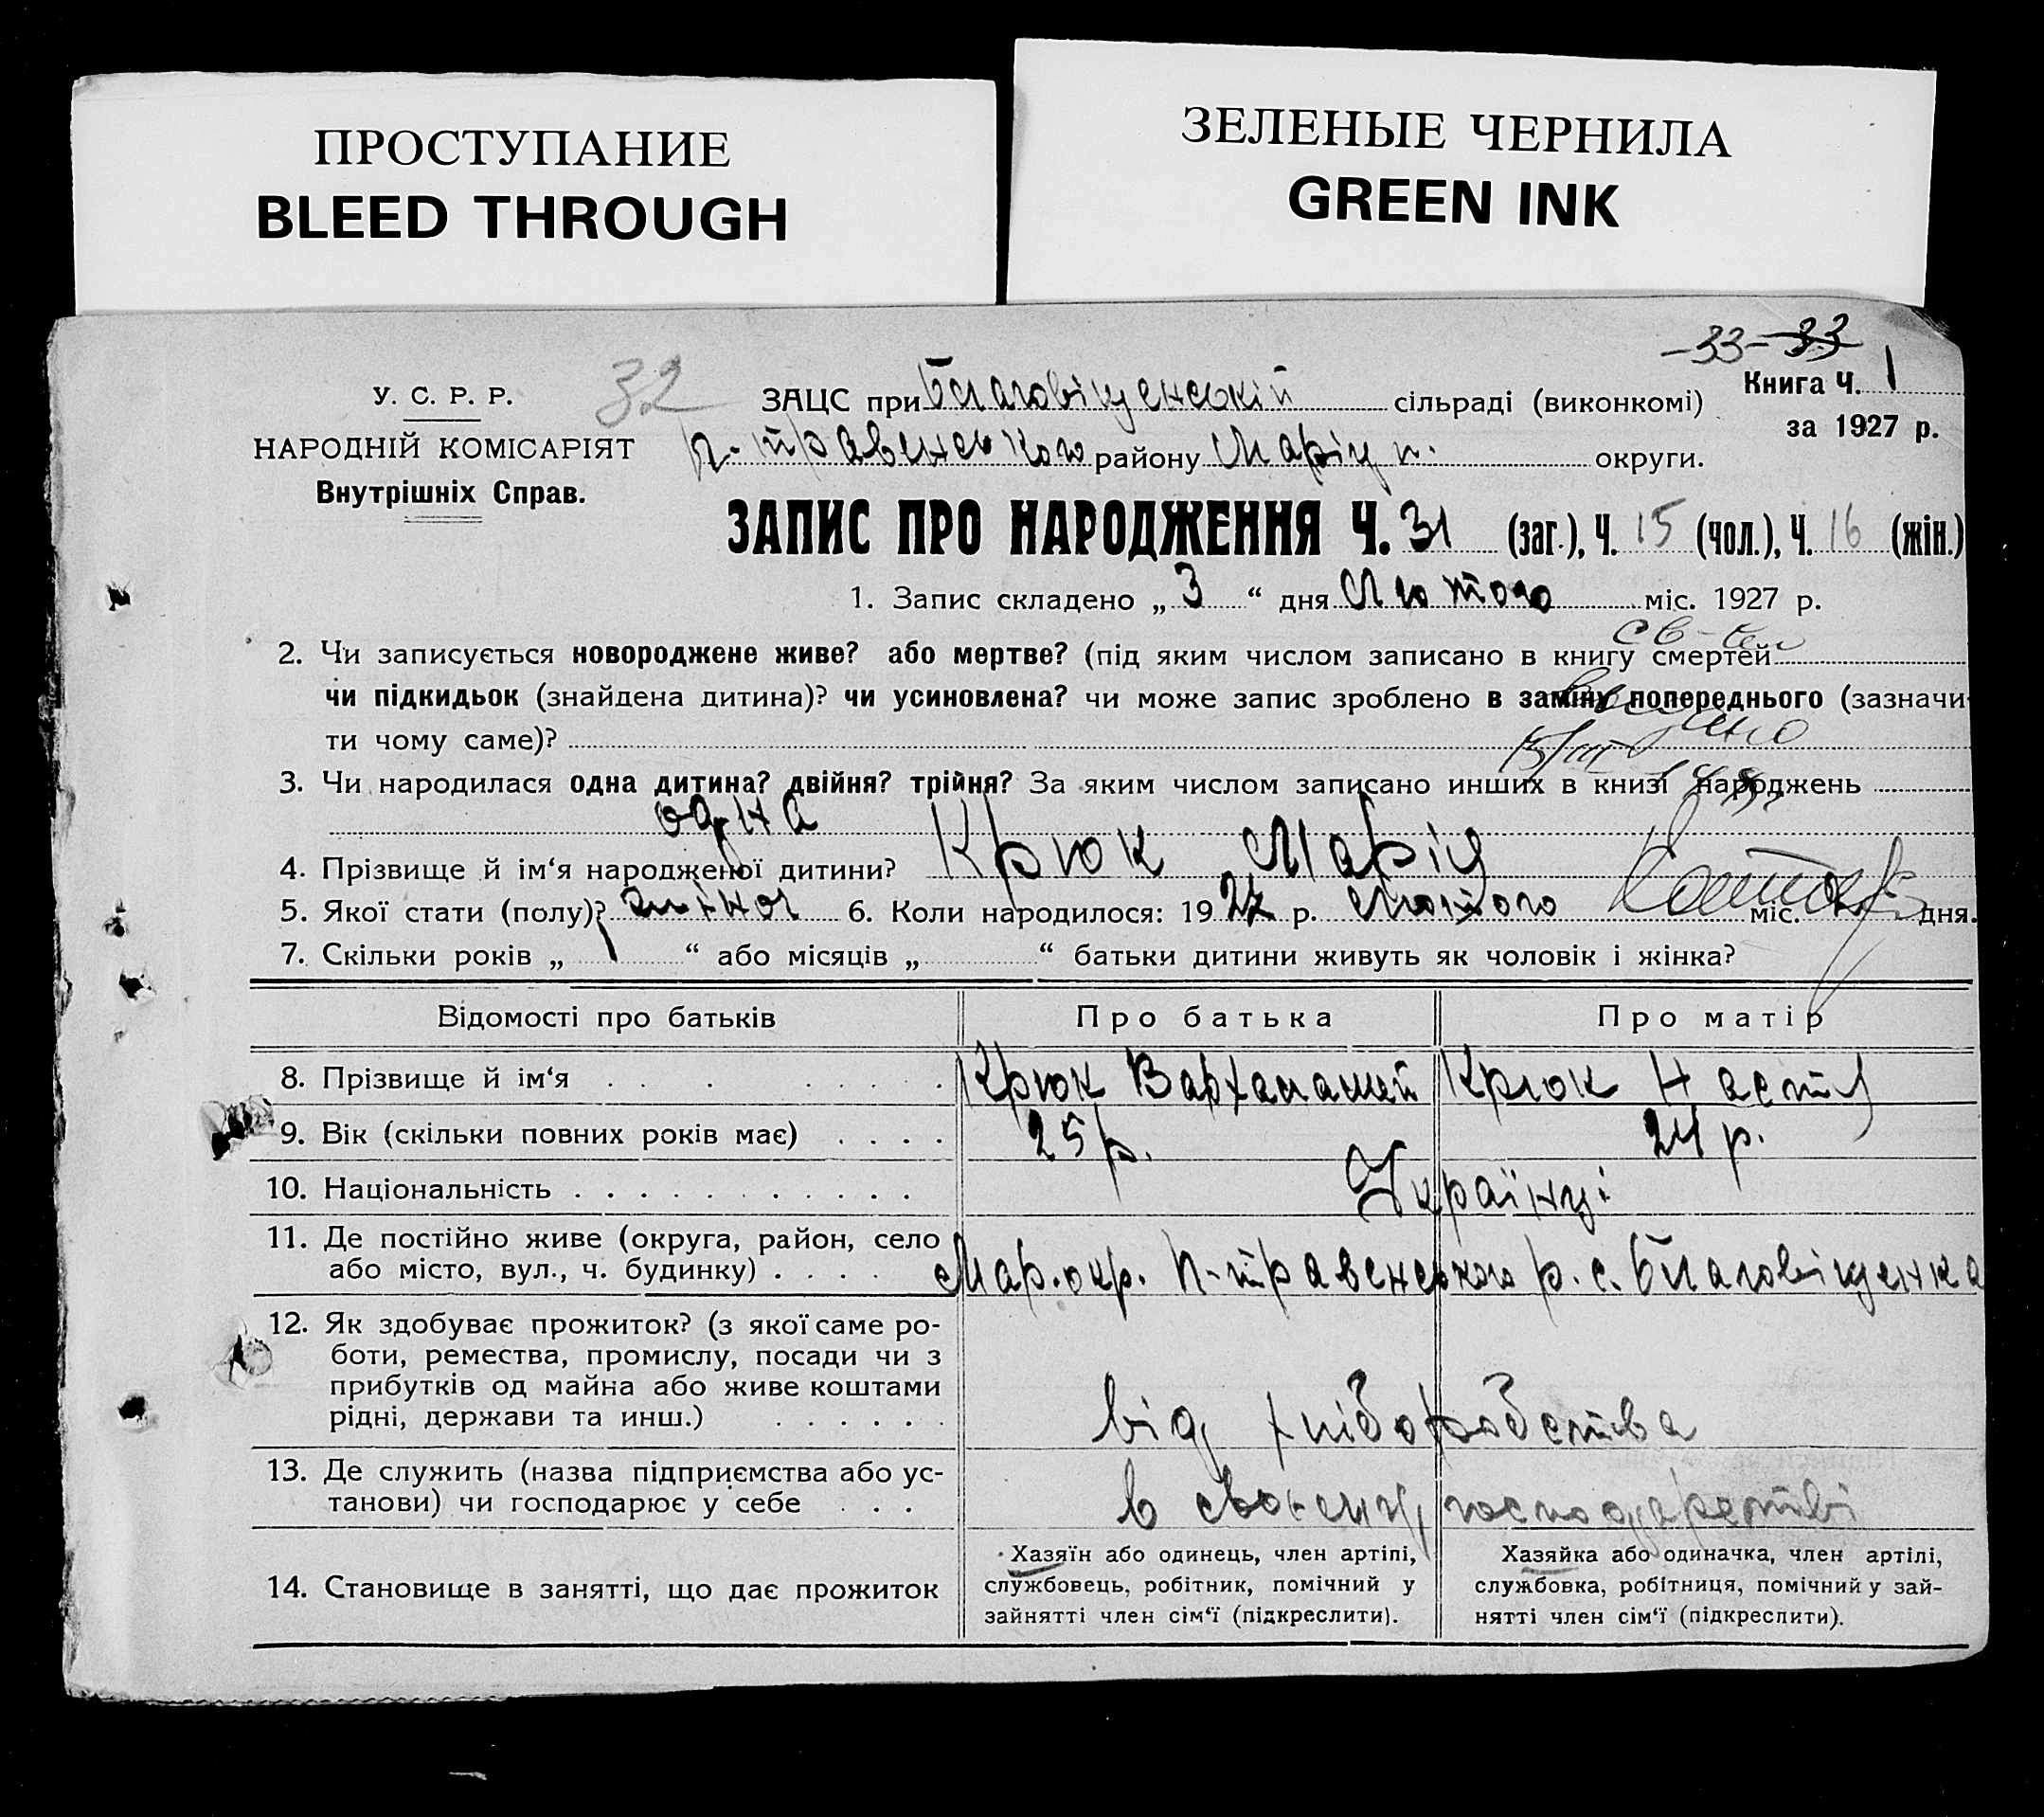 ПРОСТУПАНИЕ
BLEED THROUGH
ЗЕЛЕНЫЕ ЧЕРНИЛА
GREEN INK
-33- 33
У. С. Р. Р.
НАРОДНІЙ КОМІСАРІЯТ
Внутрішніх Справ.
32
ЗАЦС при Благовіщенській сільраді (виконкомі)
Книга Ч. 1
за 1927 р.
району Маріуп. округи.
ЗАПИС ПРО НАРОДЖЕННЯ Ч. 31 (заг.), Ч. 15 (чол.), Ч. 16 (жін.)
1. Запис складено „ 3 “ дня Лютого міс. 1927 р.
2. Чи записується новороджене живе? або мертве? (під яким числом записано в книгу смертей
чи підкидьок (знайдена дитина)? чи усиновлена? чи може запис зроблено в заміну попереднього (зазначи-
ти чому саме)?
3. Чи народилася одна дитина? двійня? трійня? За яким числом записано инших в книзі народжень
одна
4. Прізвище й ім‘я народженої дитини? Крюк Марія
5. Якої стати (полу)? жіноч 6. Коли народилося: 1927 р. Лютого міс. дня.
7. Скільки років „ “ або місяців „ “ батьки дитини живуть як чоловік і жінка?
Відомості про батьків
Про батька
Про матір
8. Прізвище й ім‘я . . . . . . . .
Крюк Варфаламей
Крюк Настя
9. Вік (скільки повних років має) . . . .
25 р.
24 р.
10. Національність . . . . . . . . . . .
Українці
11. Де постійно живе (округа, район, село
або місто, вул., ч. будинку) . . . .
Мар. окр. р. с. Благовіщенка
12. Як здобуває прожиток? (з якої саме ро-
боти, ремества, промислу, посади чи з
прибутків од майна або живе коштами
рідні, держави та инш.) . . . . . .
від хліборобства
13. Де служить (назва підприємства або ус-
танови) чи господарює у себе . . .
в своєму господарстві
14. Становище в занятті, що дає прожиток
Хазяїн або одинець, член артілі,
службовець, робітник, помічний у
зайнятті член сім‘ї (підкреслити).
Хазяйка або одиначка, член артілі,
службовка, робітниця, помічний у зай-
нятті член сім‘ї (підкреслити).